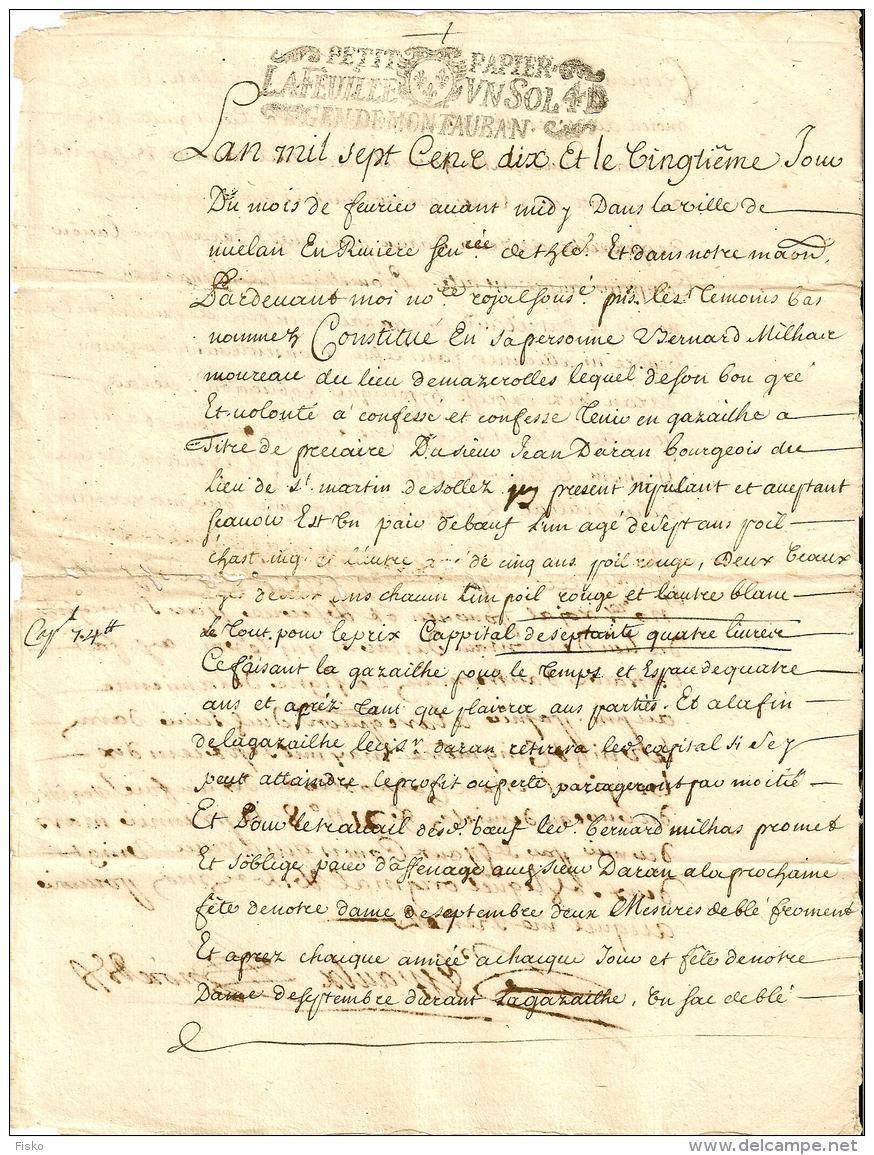 1
PETIT PAPIER
LA FEUILLE VN SOL 4 D
GEN DE MONTAUBAN
Lan mil sept Cens dix Et le Vingtième Jour
Du mois de feurier auant midy Dans la ville de
mielan En Riviere et dans notre maon
Pardeuant moi no.re royal souss.é pns. les Temoins bas
nommez Constitué En sa personne Bernard Milhas
moureau du lieu de mazerolles lequel de son bon gré
Et uolonté a confessé et confesse Tenir en gazailhe a
Titre de precaire Du sieur Jean Daran bourgeois du
lieu de St. martin present stipulant et acceptant
scauoir Est Un pair de bœuf L'un agé de sept ans poil
chastaing et l'autre agé de cinq ans poil rouge, Deux Veaux
agés de deux ans chacun L'un poil rouge et l'autre blanc
Cap.l 74 tt
le Tout pour le prix Cappital de septante quatre liures
Ce faisant la gazailhe pour le Temps et Espace de quatre
ans et apréz Tant que plairra aus parties. Et a la fin
de la gazailhe led. sr. daran retirera led. capital si s'e y
peut attaindre le profit ou perte partageront par moitié
Et Pour le trauail desd. bœuf led. bernard milhas promet
Et s'oblige paier d'affenage aud. sieur Daran a la prochaine
fête de notre dame de septembre deux Mesures de blé froment
Et aprez chaique année a chacque Jour et fête de notre
Dame de septembre durant la gazailhe, Un sac de blé
Fisko
www.delcampe.net